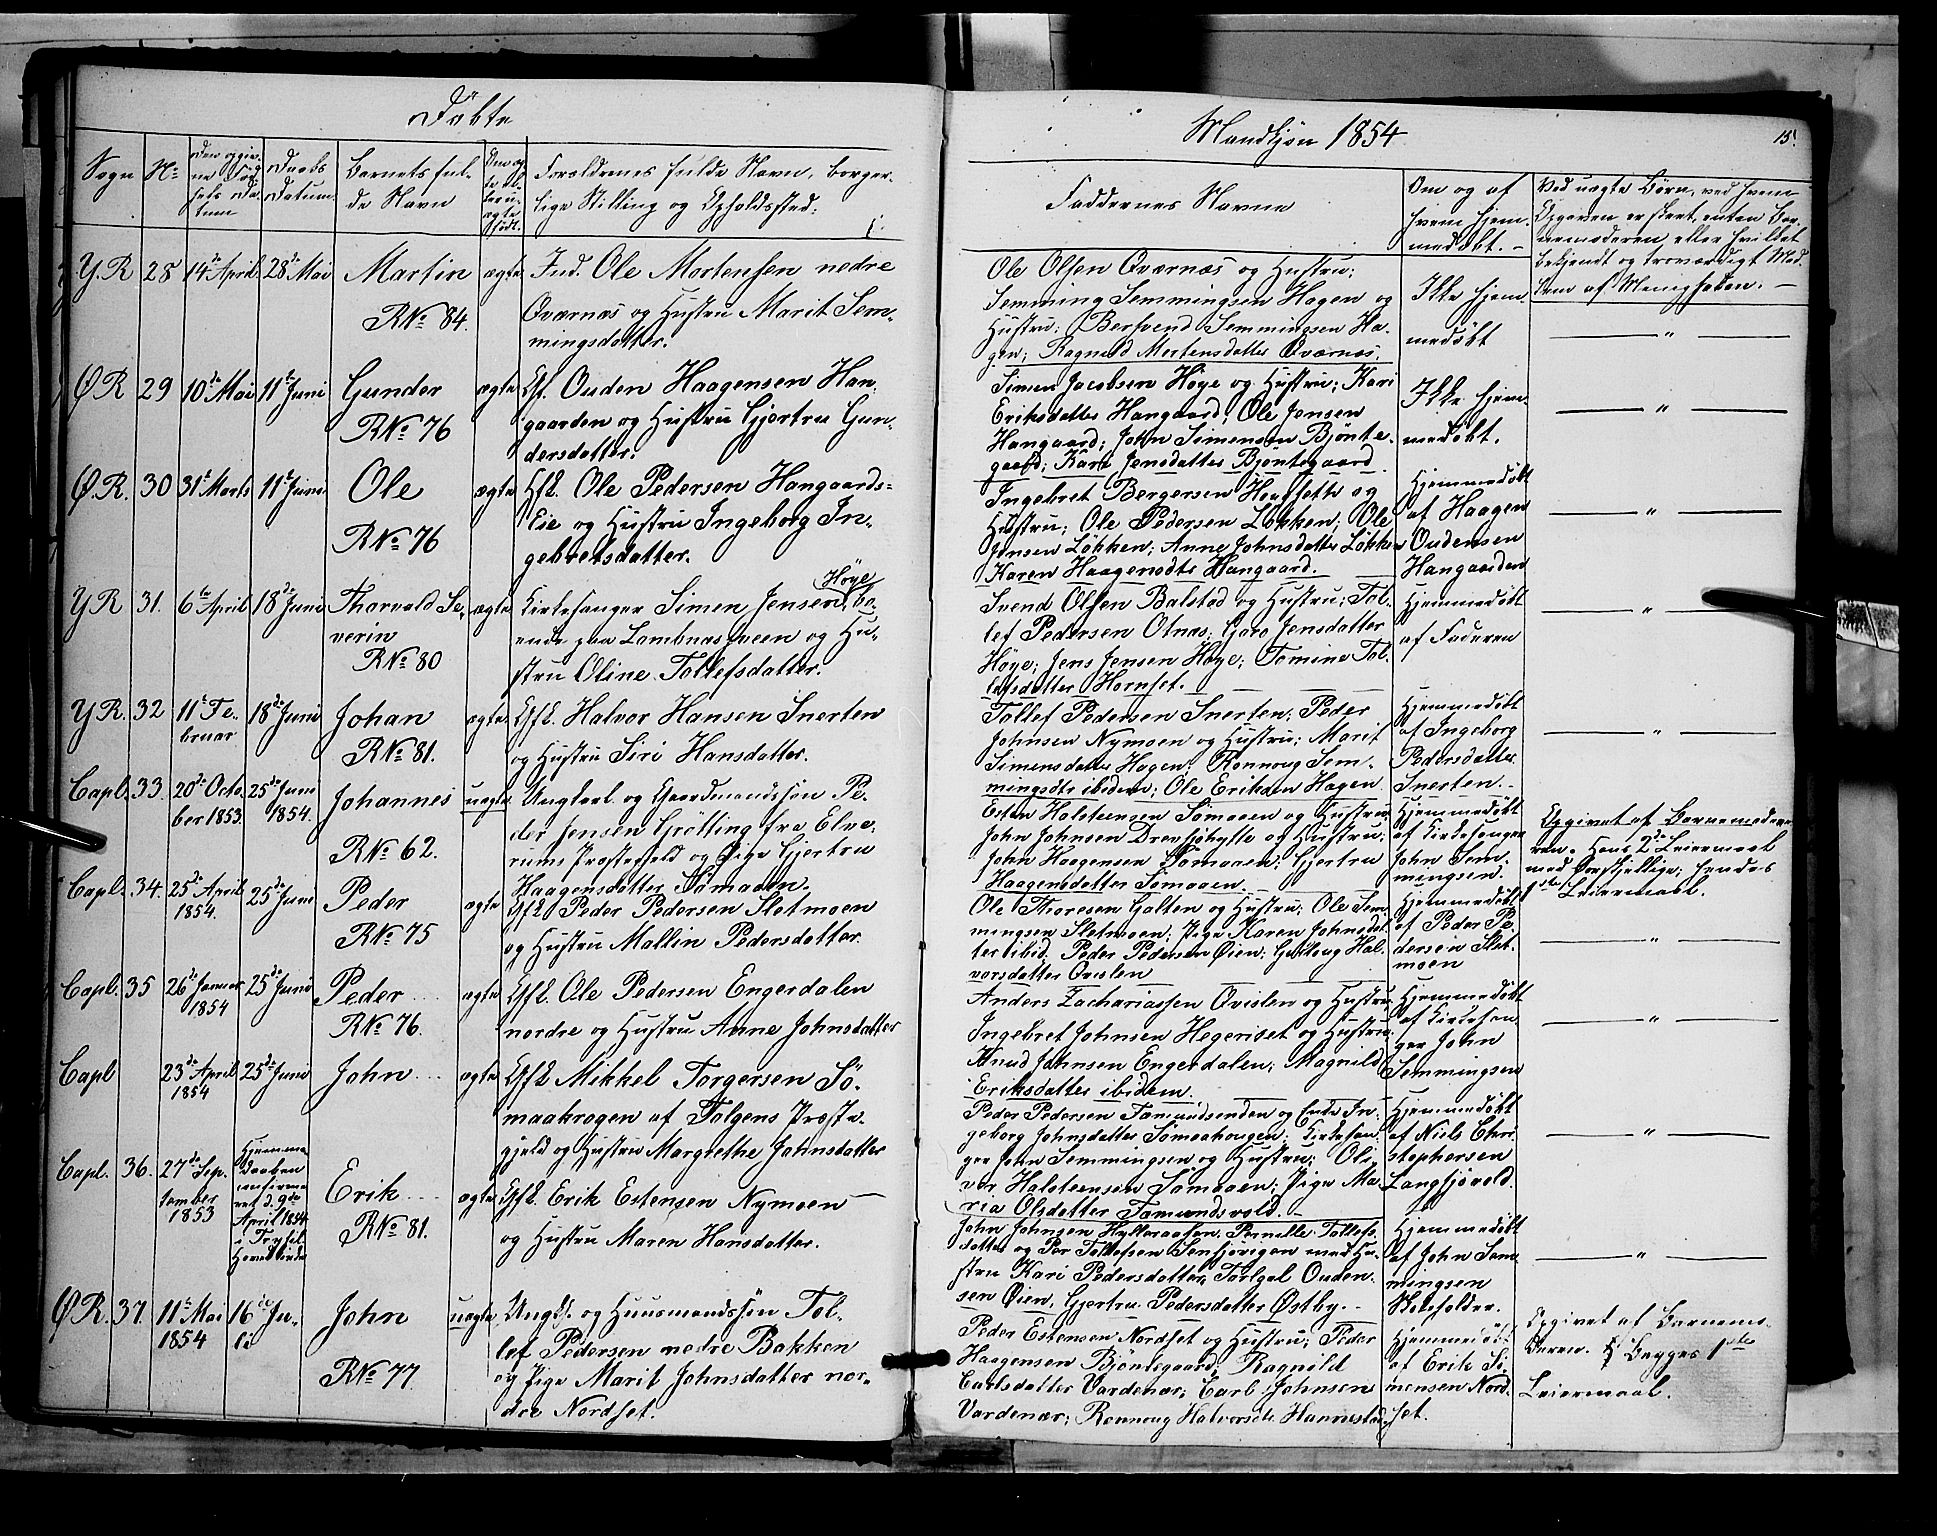 Døbte
Sogn
No
Den opgiv-
ne Fød-
sels Da-
tum
Daabs
Datum
Barnets ful-
de Navn
Om æg-
te el-
ler u-
ægte
født.
Forældrenes fulde Navn, borger-
lige Stilling og Opholdssted.
Y.R 28 14de April 28de Mai Martin ægte Ind. Ole Mortensen nedre
RNo 84. Øværnæs og Hustru Marit Sem-
mingsdatter.
ØR 29 10de Mai 11te Juni Gunder ægte Gf. Ouden Haagensen Han-
RNo 76 gaarden og Hustru Gjertru Gun-
dersdatter.
ØR. 30 31te Marts 11te Juni Ole ægte Gfk. Ole Pedersen Hangaards-
RNo 76 Eie og Hustru Ingeborg In-
gebretsdatter.
Høye
YR 31. 6te April 18de Juni Thorvald Se- ægte Kirkesanger Simen Jensen, bo-
verin ende paa Lambnæsveen og Hu-
RNo 80 stru Oline Tollefsdatter.
YR. 32 11te Fe- 18de Juni Johan ægte Gfk. Halvor Hansen Snerten
bruar RNo 81. og Hustru Siri Hansdatter.
Capl. 33. 20de Octo- 25de Juni Johannes uægte Ungkarl og Gaardmandssøn Pe-
ber 1853 1854. der Jensen Grötting fra Elve-
RNo 62. rums Præstegjeld og Pige Gjertru
Haagensdatter Sømaaen.
Capl. 34. 25de April 25de Juni Peder ægte Gfk Peder Pedersen Sletmoen
1854. RNo 75 og Hustru Mallin Pedersdatter.
Capl. 35 26de Januar 25de Juni Peder ægte Gfk. Ole Pedersen Engerdalen
1854 RNo 76. nordre og Hustru Anne Johnsdatter
Capl 23de April 25de Juni John ægte Gfk Mikkel Torgersen Sö-
1854 maakrogen af Tolgens Præste-
gjeld og Hustru Margrethe Johnsdatter
Capl. 36. 27de Sep- Hjemme- Erik ægte Gfk. Erik Estensen Nymoen
tember daaben RNo 81. og Hustru Maren Hansdatter.
1853 confirme-
ret d. 9de
April 1854
i Trysil
Hovedkirke
ØR. 37. 11te Mai 16de Ju- John uægte Ungk. og Huusmandssøn Tol-
1854 li RNo 77 lef Pedersen nedre Bakken
og Pige Marit Johnsdatter nor-
dre Nordset.
Mandkjøn 1854
15.
Faddernes Navne
Om og af
hvem hjem-
medøbt.
Ved uægte Børn, ved hvem
Opgaven er skeet, enten Bar-
nemoderen eller hvilket
bekjendt og troværdigt Med-
lem af Menigheden.
Ole Olsen Øværnæs og Hustru;
Semming Semmingsen Hagen og
Hustru; Bersvend Semmingsen Ha-
gen; Ragnild Mortensdatter Øværnæs.
Ikke hjem-
medøbt
Simen Jacobsen Høye og Hustru; Kari
Eriksdatter Hangaard; Ole Jensen
Hangaard; John Simensen Bjønte-
gaard; Kari Jensdatter Bjøntegaard
Ikke hjem-
medøbt.
Ingebret Bergersen Housette og
Hustru; Ole Pedersen Løkken; Ole
Jensen Løkken; Anne Johnsdatter Løkken
Karen Haagensdtr Hangaard.
Hjemmedøbt
af Haagen
Oudensen
Hangaarden
Svend Olsen Balstad og Hustru; Tol-
lef Pedersen Otnæs; Goro Jensdatter
Høye; Jens Jensen Høye; Tomine Tol-
lefsdatter Hornset.
Hjemmedøbt
af Faderen
Tollef Pedersen Snerten; Peder
Johnsen Nymoen og Hustru; Marit
Simensdatter Hagen; Rønnoug Sem-
mingsdtr ibidem; Ole Eriksen Hagen
Hjemmedøbt
af Ingeborg
Pedersdatter
Snerten.
Esten Halsteensen Sømaaen og Hustru
John Johnsen Drevsjøhytte og Hustru;
John Haagensen Sømaaen; Gjertru
Haagensdatter Sømaaen.
Hjemmedøbt
af Kirkesanger
John Sem-
mingsen.
Opgivet af Barnemode-
ren. Hans 2det Leiermaal
med Forskjellige; hendes
1ste Leiermaal.
Ole Thoresen Galten og Hustru; Ole Sem-
mingsen Sletmoen; Pige Karen Johnsdat-
ter ibid; Peder Pedersen Øien; Gulloug Hal-
vorsdatter Qvislen
Hjemmedøbt
af Peder Pe-
dersen Slet-
moen
Anders Zachariassen Qvislen og Hustru
Ingebret Johnsen Hegeriset og Hustru
Knud Johnsen Engerdalen; Magnild
Eriksdatter ibidem.
Hjemmedøbt
af Kirkesan-
ger John
Semmingsen
Peder Pedersen Fæmundsenden og Enke In-
geborg Johnsdatter Sømaahougen; Kirkesan-
ger John Semmingsen og Hustru; Oli-
ver Halsteensen Sømaaen; Pige Ma-
ria Olsdatter Fæmundsvold.
Hjemmedøbt
af Niels Chri-
stophersen
Langsjøvold.
John Johnsen Hylleraasen, Pernille Tollefs-
datter og Per Tollefsen Sensjøvigen med Hu-
stru Kari Pedersdatter, Torgal Ouden-
sen Øien, Gjertru Pedersdatter Østby.
Hjemmedøbt
af John Sem-
mingsen
Skoleholder.
Peder Estensen Nordset og Hustru; Peder
Haagensen Bjøntegaard; Ragnild
Carlsdatter Vardenær; Carl Johnsen
Vardenær; Rønnoug Halvorsdtr Hannestad
Hjemmedøbt
af Erik Si-
mensen Nord-
set.
Opgivet af Barnemo-
deren. Begges 1ste
Leiermaal.